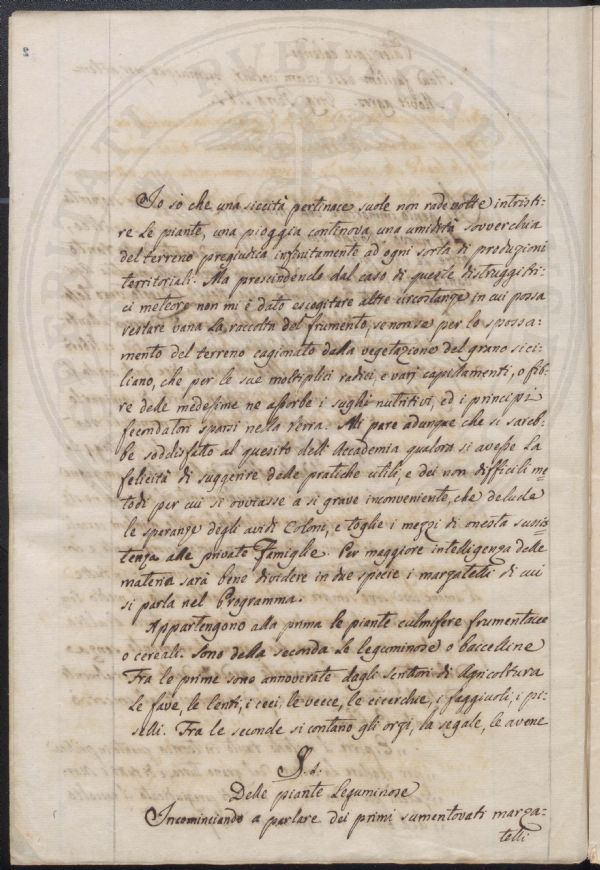 Io sò che una siccità pertinace suole non rade volte intristi-
re le piante, una pioggia continova, una umidità sovverchia
del terreno pregiudica infinitamente ad ogni sorta di produzioni
territoriali. Ma prescindendo dal caso di queste distruggitri-
ci meteore non mi è dato escogitare altre circostanze in cui possa
restare vana la raccolta del frumento, senonse per lo sposa-
mento del terreno cagionato dalla vegetazione del grano sici-
liano, che per le sue moltiplici radici, e varj capillamenti, o fib-
re delle medesime ne assorbe i sughi nutritivi, ed i principj
fecondatori sparsi nella terra. Mi pare adunque che si sareb-
be soddisfatto al quesito dell'Accademia qualora si avesse la
felicità di suggerire delle pratiche utili, e dei non difficili me-
todi per cui si ovviasse a si grave inconveniente, che delude
le speranze degli avidi Coloni, e toglie i mezzi di onesta sussis-
tenza alle private Famiglie. Per maggiore intelligenza delle
materia sarà bene dividere in due specie i marzatelli di cui
si parla nel Programma.
Appartengono alla prima le piante culmifere frumentacee
o cereali. Sono della seconda le leguminose o baccelline
Tra le prime sono annoverate dagli Scrittori di Agricoltura
le fave, le lenti, i ceci, le vecce, le cicerchie, i faggiuoli, i pi-
selli. Tra le seconde si contano gli orzi, la segale, le avene
Delle piante Leguminose
Incominciando a parlare dei primi sumentovati marza-
telli